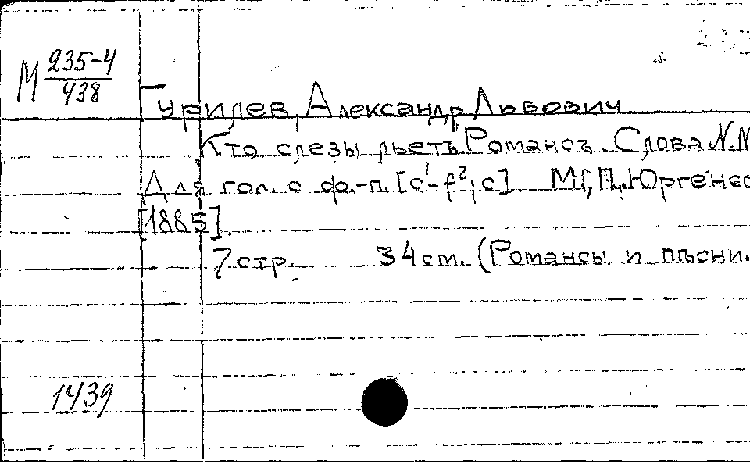 М 235-4
438
Гурилев, Александр Львович
Кто слезы льетъ. Романсъ. Слова N.N
Для гол. с ф.-п. [c¹-f²; c] М., П. Юргенсо
[1885]
7 стр. 34 см. (Романсы и пѣсни.
1439